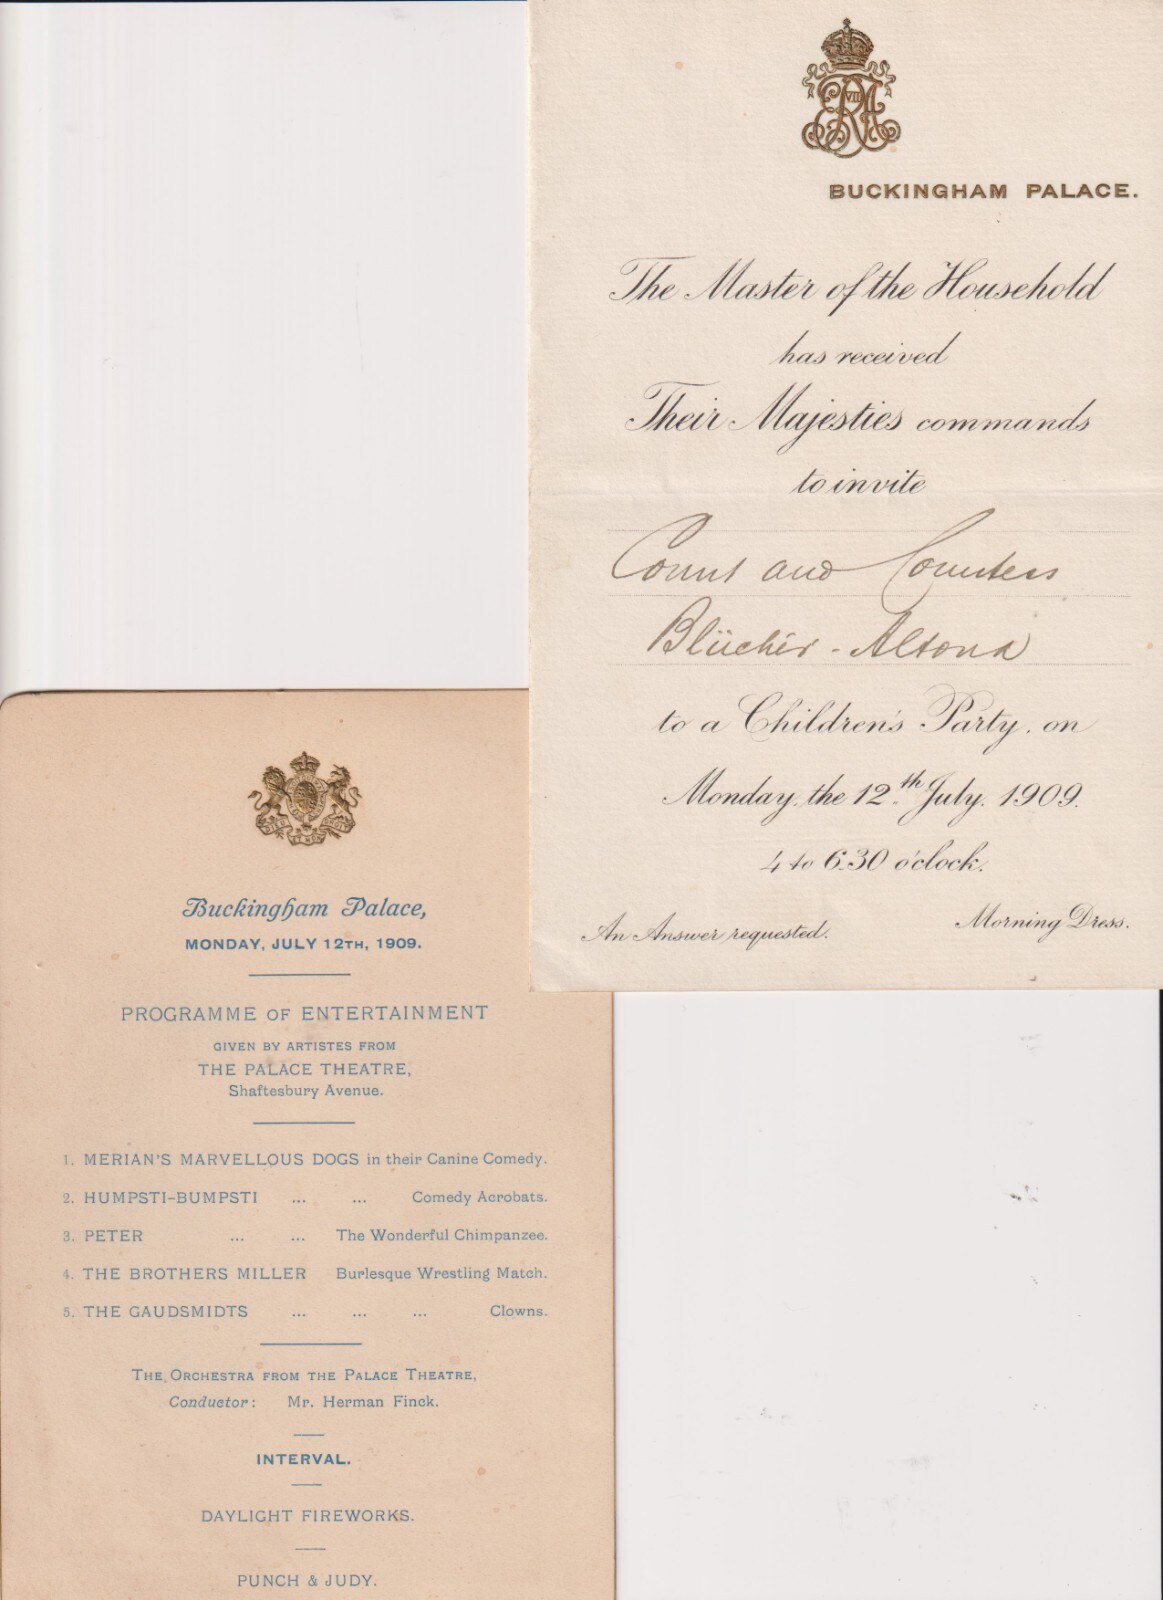 BUCKINGHAM PALACE.
The Master of the Household
has received
Their Majesties commands
to invite
Count and Countess
Blücher - Altona
to a Children's Party, on
Monday, the 12th July, 1909.
4 to 6.30 o'clock.
An Answer requested.
Morning Dress.
Buckingham Palace,
MONDAY, JULY 12TH, 1909.
PROGRAMME OF ENTERTAINMENT
GIVEN BY ARTISTES FROM
THE PALACE THEATRE,
Shaftesbury Avenue.
1. MERIAN'S MARVELLOUS DOGS in their Canine Comedy.
2. HUMPSTI-BUMPSTI ... ... Comedy Acrobats.
3. PETER ... ... The Wonderful Chimpanzee.
4. THE BROTHERS MILLER Burlesque Wrestling Match.
5. THE GAUDSMIDTS ... ... ... Clowns.
THE ORCHESTRA FROM THE PALACE THEATRE,
Conductor: Mr. Herman Finck.
INTERVAL.
DAYLIGHT FIREWORKS.
PUNCH & JUDY.